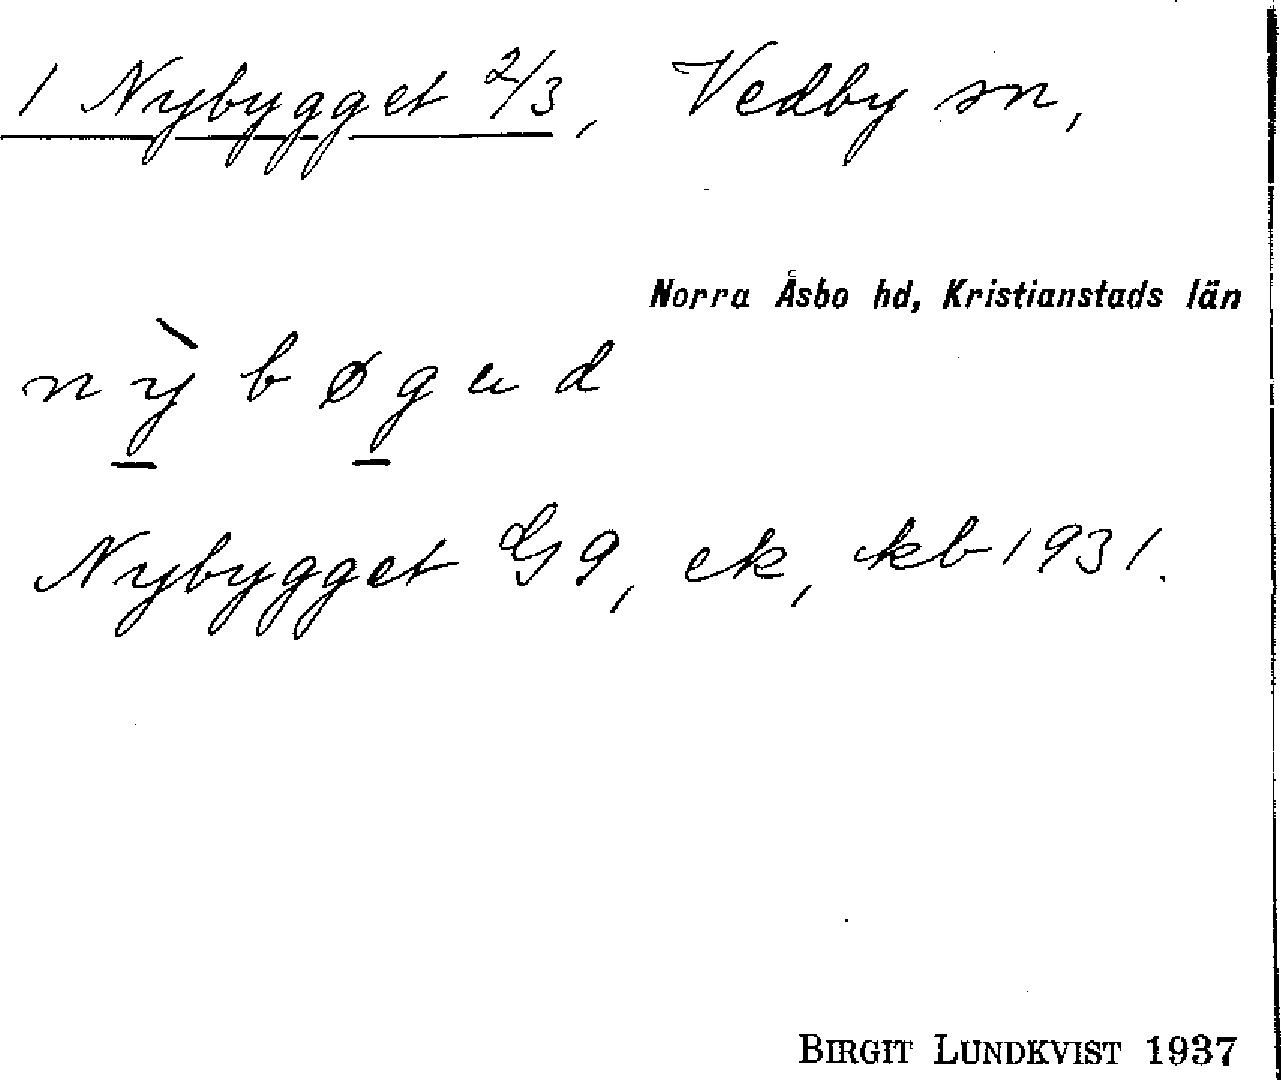 1 Nybygget 2/3, Vedby sn,
Norra Åsbo hd, Kristianstads län
nỳbøgad
Nybygget G 9, ek, kb 1931.
BIRGIT LUNDKVIST 1937